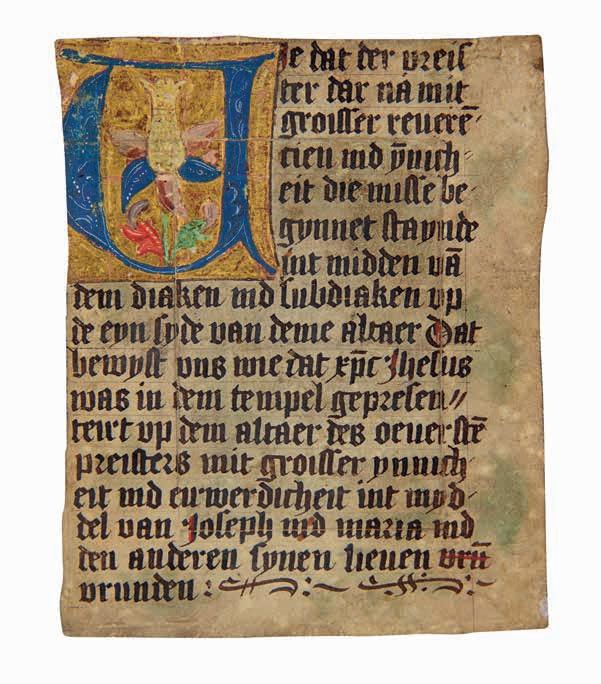 Uie dat der preis
ter dar na mit
groisser reuerē-
cien ind ȳnich-
eit die misse be-
gynnet staynde
int midden vā
dem diaken ind subdiaken vp
de eyn syde van deme altaer Dat
bewyst vns wie dat xp̄c Jhesus
was in dem tempel gepresen//
teirt vp dem altaer des oeuerstē
preisters mit groisser ynnich-
eit ind eirwerdicheit int myd-
del van Joseph ind maria ind
den anderen synen lieuen vrū
vrunden :